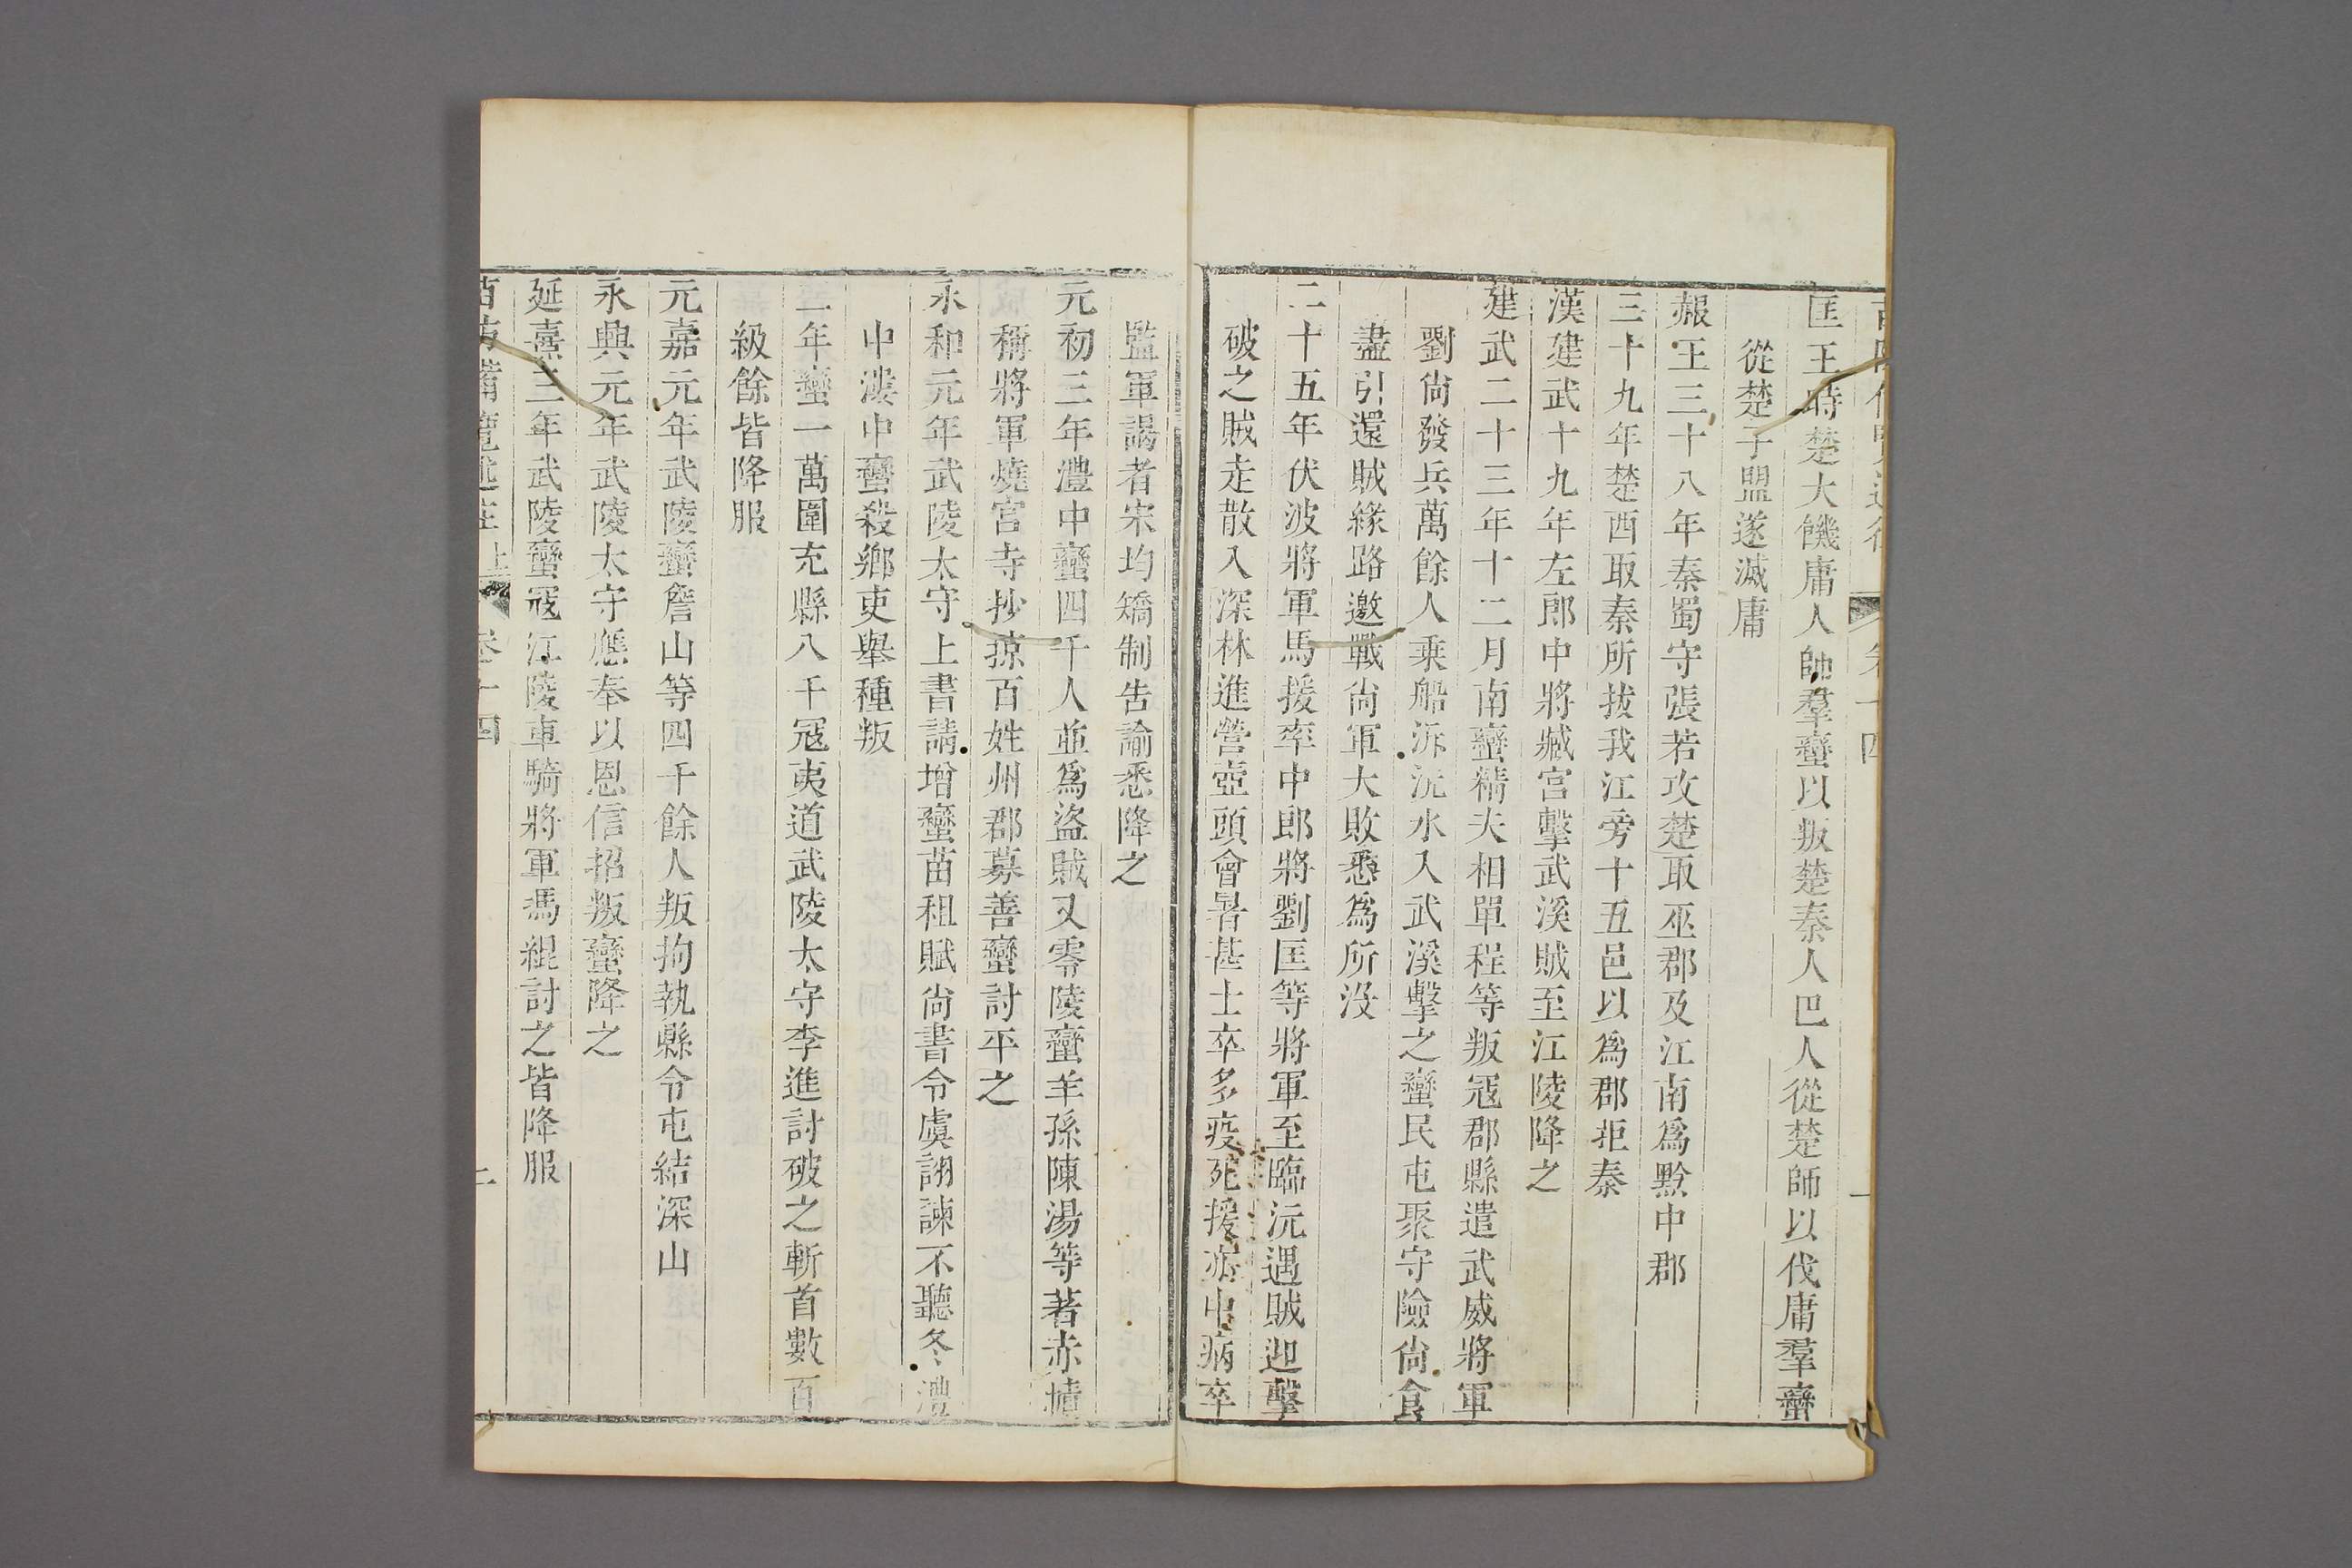 匡王時楚大饑庸人帥羣蠻以叛楚秦人巴人從楚師以伐庸羣蠻
從楚子盟遂滅庸
赧王三十八年秦蜀守張若攻楚取巫郡及江南爲黔中郡
三十九年楚西取秦所拔我江旁十五邑以爲郡拒秦
漢建武十九年左郎中將臧宮擊武溪賊至江陵降之
建武二十三年十二月南蠻精夫相單程等叛冦郡縣遣武威將軍
劉尙發兵萬餘人乘船泝沅水入武溪擊之蠻民屯聚守險尙食
盡引還賊緣路邀戰尙軍大敗悉爲所沒
二十五年伏波將軍馬援率中郎將劉匡等將軍至臨沅遇賊迎擊
破之賊走散入深林進營壺頭會暑甚士卒多疫死援亦中病卒
監軍謁者宋均矯制告諭悉降之
元初三年澧中蠻四千人並爲盜賊又零陵蠻羊孫陳湯等著赤幘
稱將軍燒官寺抄掠百姓州郡募善蠻討平之
永和元年武陵太守上書請增蠻苗租賦尙書令虞詡諫不聽冬澧
中漊中蠻殺鄉吏舉種叛
二年蠻一萬圍充縣八千冦夷道武陵太守李進討破之斬首數百
級餘皆降服
元嘉元年武陵蠻詹山等四千餘人叛拘執縣令屯結深山
永興元年武陵太守應奉以恩信招叛蠻降之
延熹三年武陵蠻冦江陵車騎將軍馮緄討之皆降服
苗防備覽述往上 卷十四